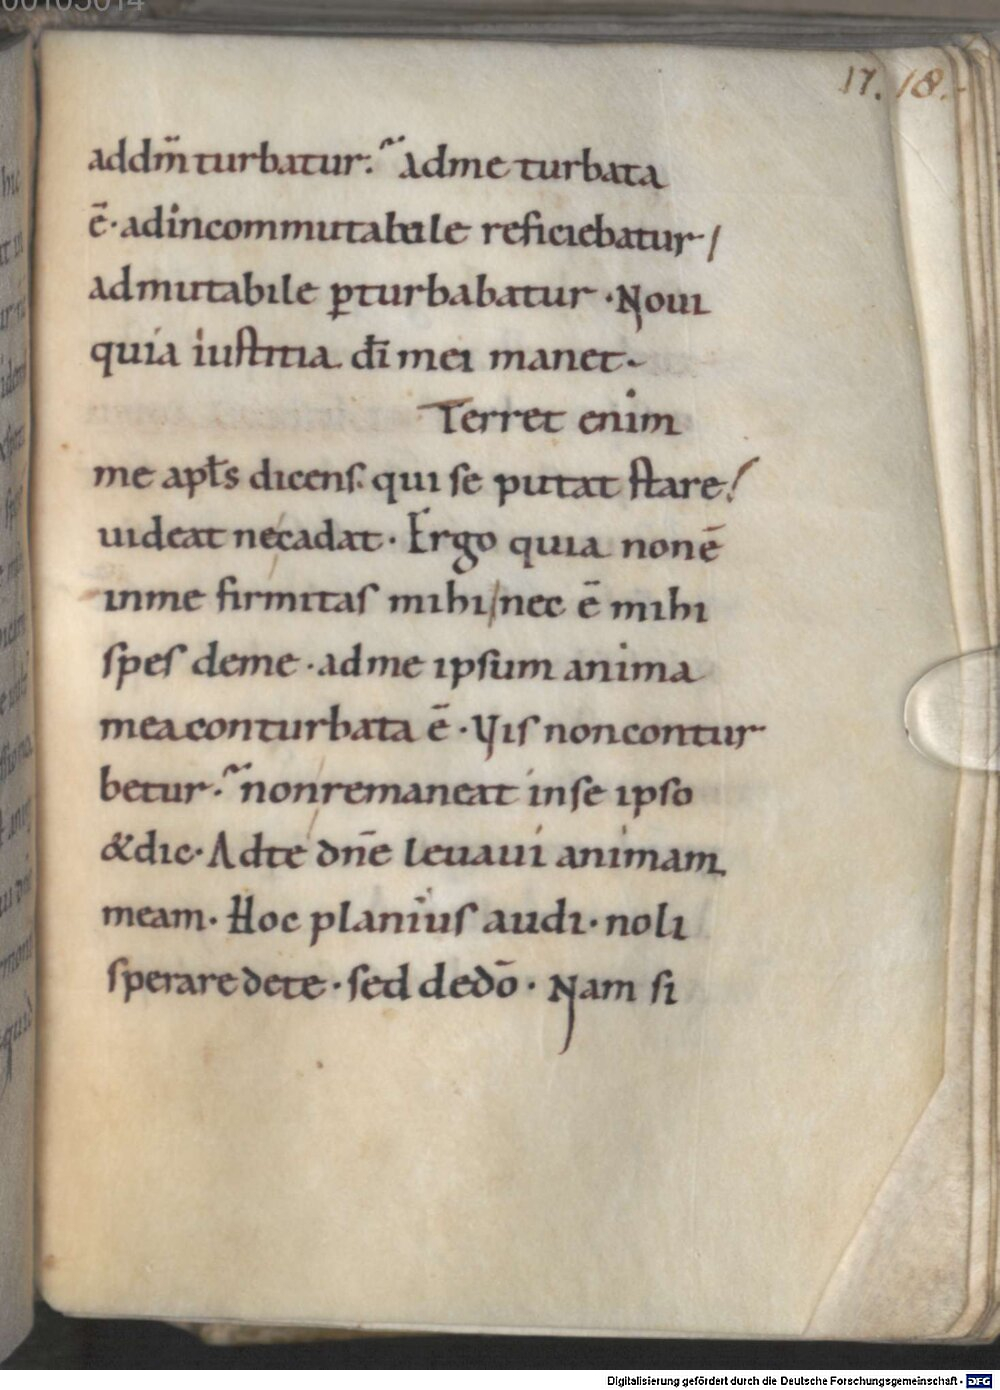 00105014
17. 18.
addm̄ turbatur. Adme turbata
ē· adincommutabile reficiebatur/
admutabile ꝑturbabatur · Noui
quia iuſtitia dī mei manet.
Terret enim
me apłs dicenſ. qui ſe putat ſtare/
uideat ne cadat · Ergo quia nonē
inme firmitaſ mihi/nec ē mihi
ſpeſ deme · adme ipſum anima
mea conturbata ē · Viſ non contur
betur. non remaneat inſe ipſo
&dic· Adte dn̄e leuaui animam
meam. Hoc planiuſ audi · noli
ſperare dete · ſed dedō · Nam ſi
Digitalisierung gefördert durch die Deutsche Forschungsgemeinschaft - DFG